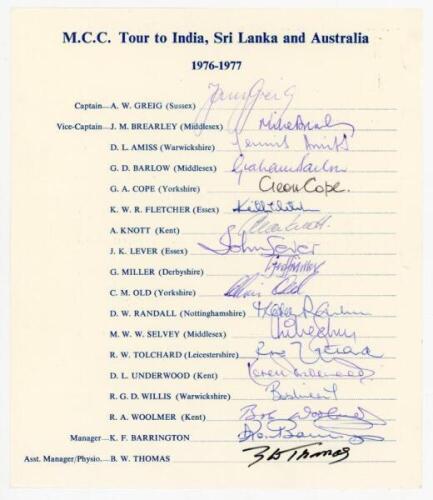 M.C.C. Tour to India, Sri Lanka and Australia
1976-1977
Captain—A. W. GREIG (Sussex) Tony Greig
Vice-Captain—J. M. BREARLEY (Middlesex) Mike Brearley
D. L. AMISS (Warwickshire) Dennis Amiss
G. D. BARLOW (Middlesex) Graham Barlow
G. A. COPE (Yorkshire) Geoff Cope.
K. W. R. FLETCHER (Essex)
A. KNOTT (Kent) Alan Knott
J. K. LEVER (Essex) John Lever
G. MILLER (Derbyshire)
C. M. OLD (Yorkshire) Chris Old
D. W. RANDALL (Nottinghamshire) Derek Randall
M. W. W. SELVEY (Middlesex)
R. W. TOLCHARD (Leicestershire)
D. L. UNDERWOOD (Kent) Derek Underwood
R. G. D. WILLIS (Warwickshire)
R. A. WOOLMER (Kent) Bob Woolmer
Manager—K. F. BARRINGTON
Asst. Manager/Physio.—B. W. THOMAS B W Thomas